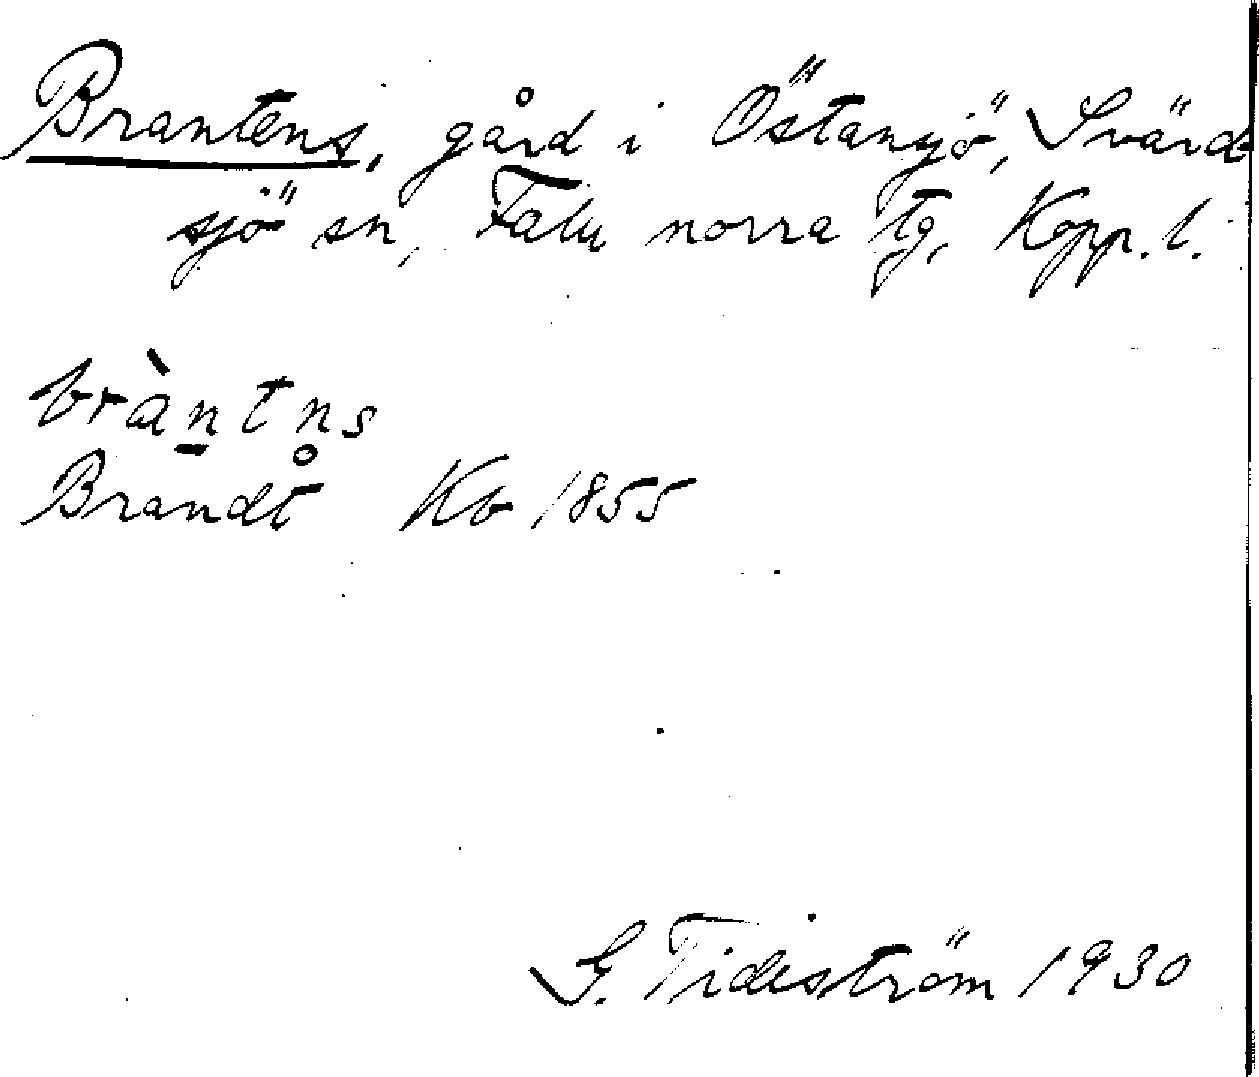 Brantens, gård i Östansjö, Svärd-
sjö sn, Falu norra tg, Kopp. l.
bràn̠tn̥s
Brandt Kb 1855
G. Tideström 1930